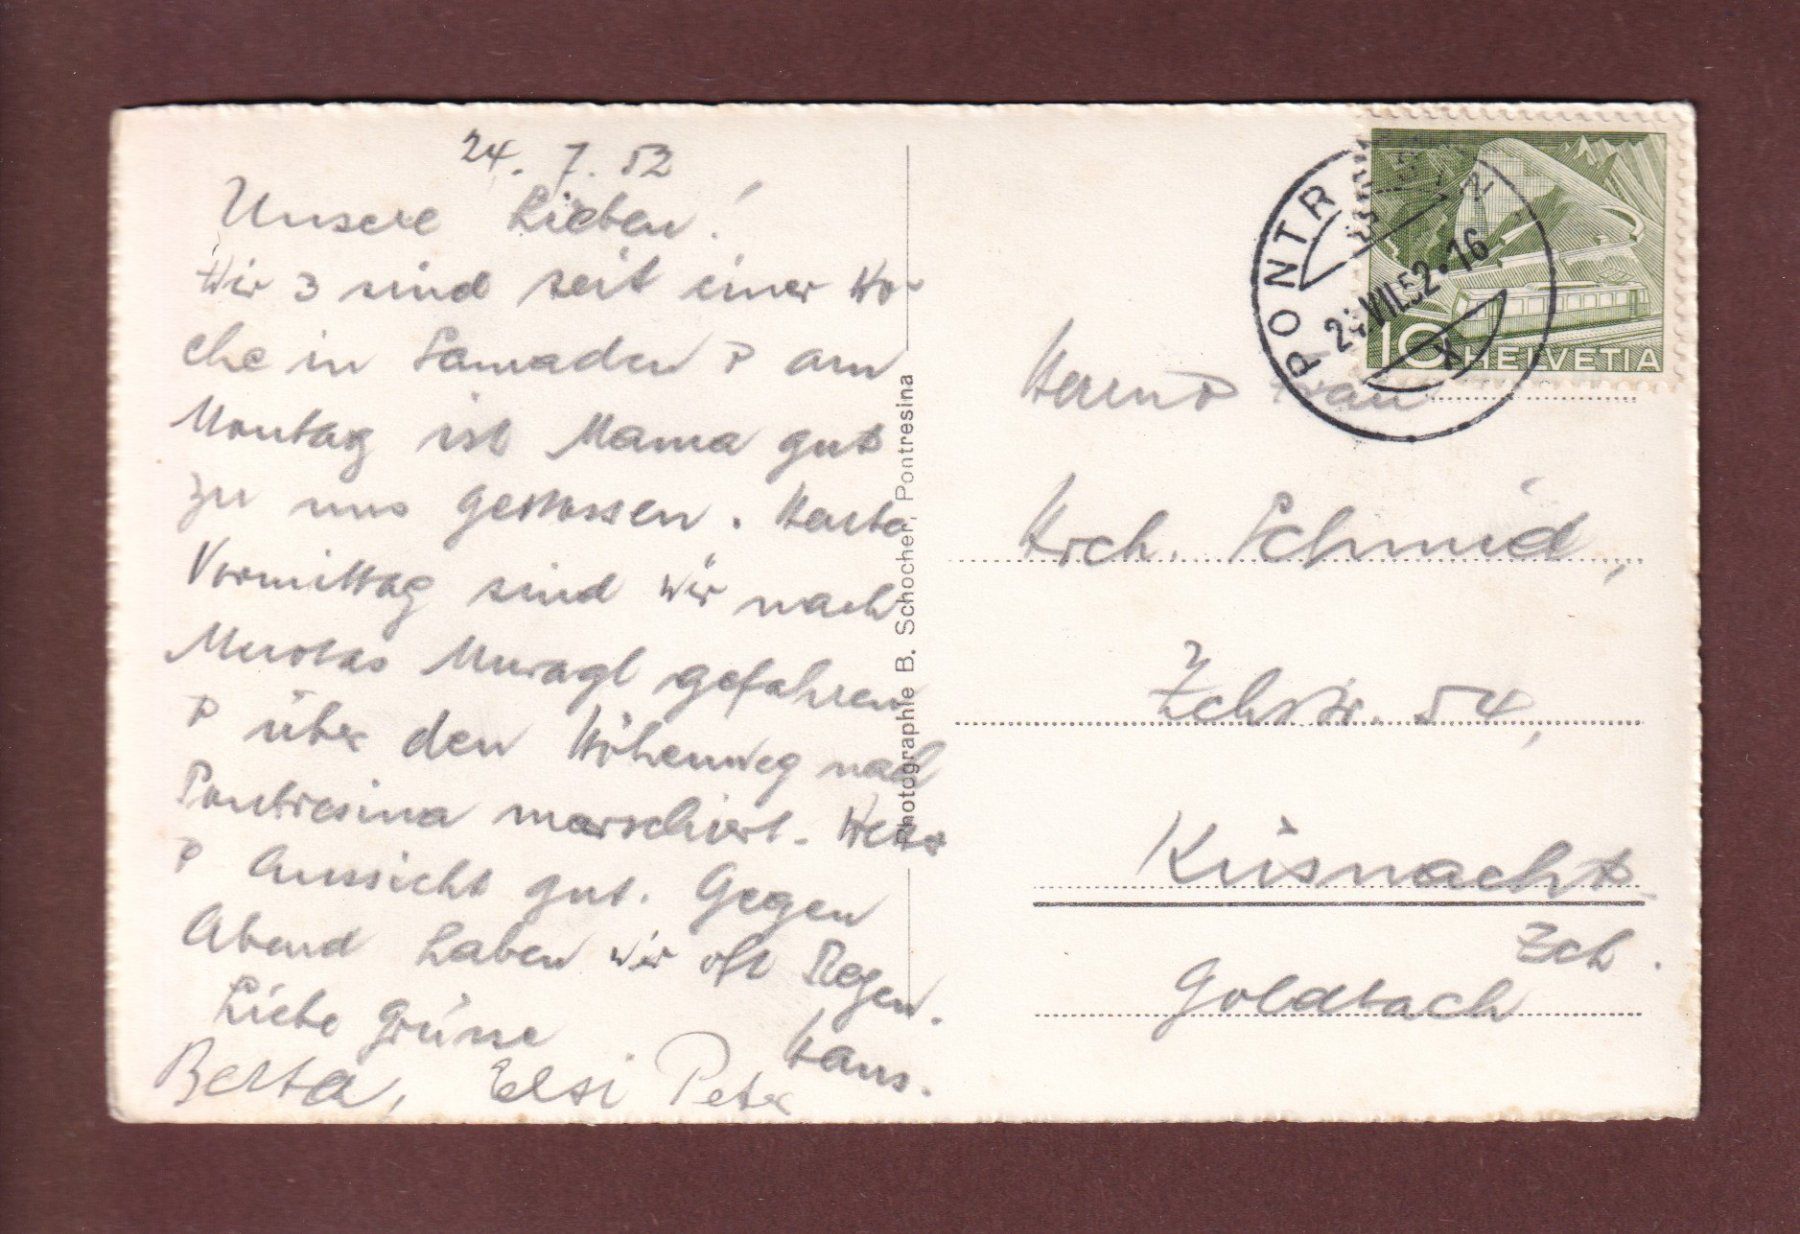 24. 7. 52
Unsere Lieben!
Wir 3 sind seit einer Wo-
che in Samaden & am
Montag ist Mama gut
zu uns gestossen. Heute
Vormittag sind wir nach
Muottas Muragl gefahren
& über den Höhenweg nach
Pontresina marschiert.
& Aussicht gut. Gegen
Abend haben wir oft Regen.
Liebe Grüsse Hans.
Berta, Elsi Peter
Photographie B. Schocher, Pontresina
PONTR
24.VII.52·16
10 HELVETIA
Herrn & Frau
Arch. Schmid,
Zchstr. 54,
Küsnacht
Zch.
Goldbach